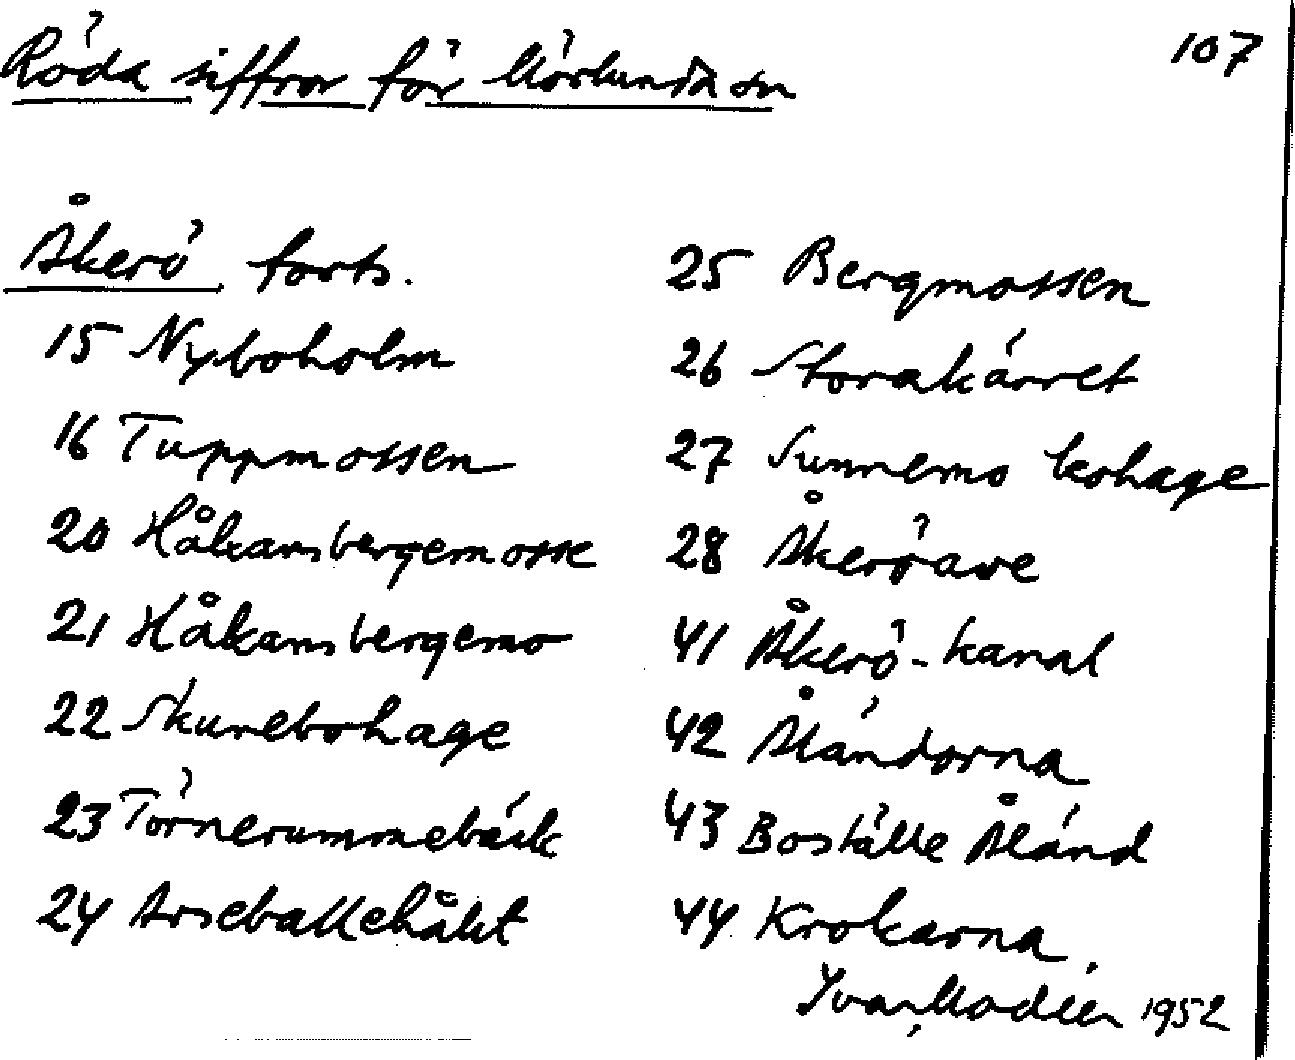 Röda siffror för Mörlunda sn
107
Åkerö forts.
15 Nyboholm
16 Tuppmossen
20 Håkansbergemosse
21 Håkansbergemo
22 Skurebohage
23 Törnerummebäck
24 Arseballehålet
25 Bergmossen
26 Storakärret
27 Sunnemo kohage
28 Åkeröave
41 Åkerö-kanal
42 Åländorna
43 Boställe Åländ
44 Krokarna
Ivar Modéer 1952